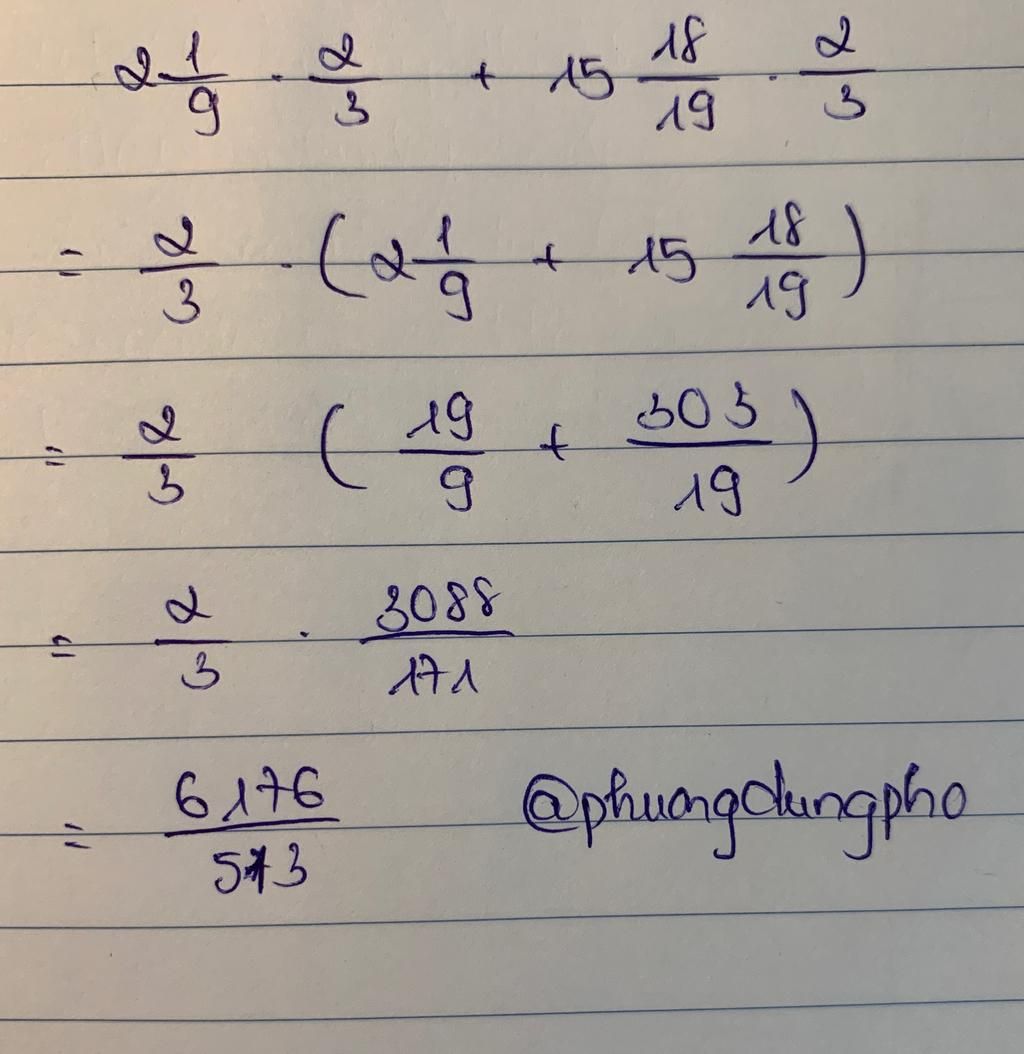 2 1/9 . 2/3 + 15 18/19 . 2/3
= 2/3 . ( 2 1/9 + 15 18/19 )
= 2/3 ( 19/9 + 303/19 )
= 2/3 . 3088/171
= 6176/513 @phuongdungpho